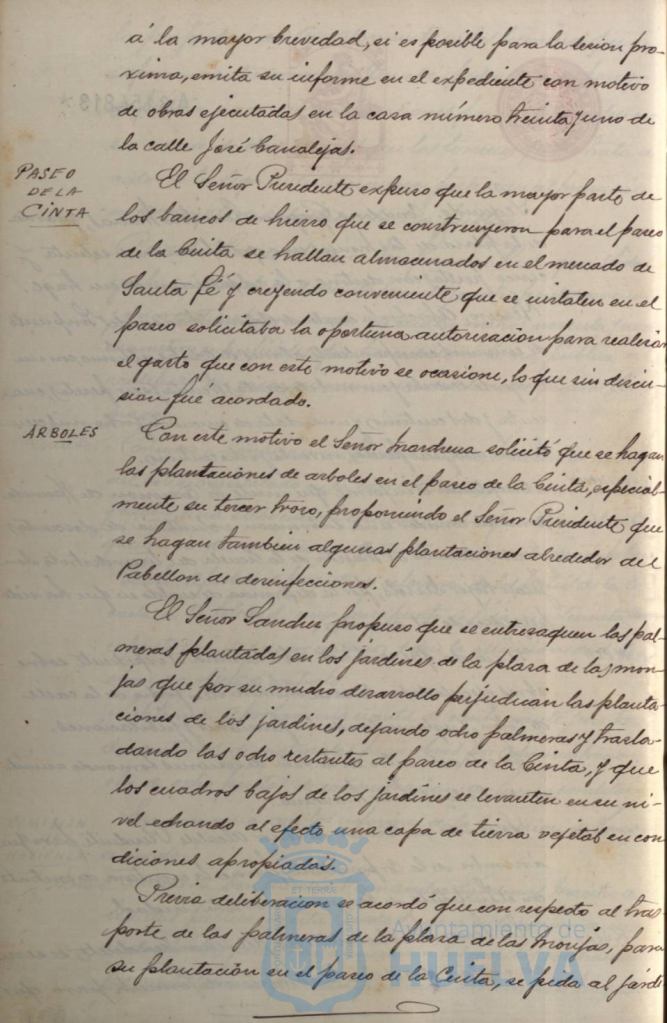 á la mayor brevedad, si es posible para la sesion pro-
xima, emita su informe en el expediente con motivo
de obras ejecutadas en la casa número treinta y uno de
la calle José Canalejas.
PASEO
DE LA
CINTA
El Señor Presidente expuso que la mayor parte de
los bancos de hierro que se construyeron para el paseo
de la Cinta se hallan almacenados en el mercado de
Santa Fé y creyendo conveniente que se instalen en el
paseo solicitaba la oportuna autorisacion para realisar
el gasto que con este motivo se ocasione, lo que sin discu-
sion fué acordado.
ÁRBOLES
Con este motivo el Señor Marchena solicitó que se hagan
las plantaciones de arboles en el paseo de la Cinta, especial-
mente su tercer troso, proponiendo el Señor Presidente que
se hagan tambien algunas plantaciones alrededor del
Pabellon de desinfecciones.
El Señor Sanchez propuso que se entresaquen las pal-
meras plantadas en los jardines de la plaza de las mon-
jas que por su mucho desarrollo perjudican las planta-
ciones de los jardines, dejando ocho palmeras y trasla-
dando las ocho restantes al paseo de la Cinta, y que
los cuadros bajos de los jardines se levanten en su ni-
vel echando al efecto una capa de tierra vejetal en con
diciones apropiadas.
Previa deliberacion se acordó que con respecto al tras-
porte de las palmeras de la plaza de las Monjas, para
su plantación en el paseo de la Cinta, se pida al jardi-
Ayuntamiento de
HUELVA